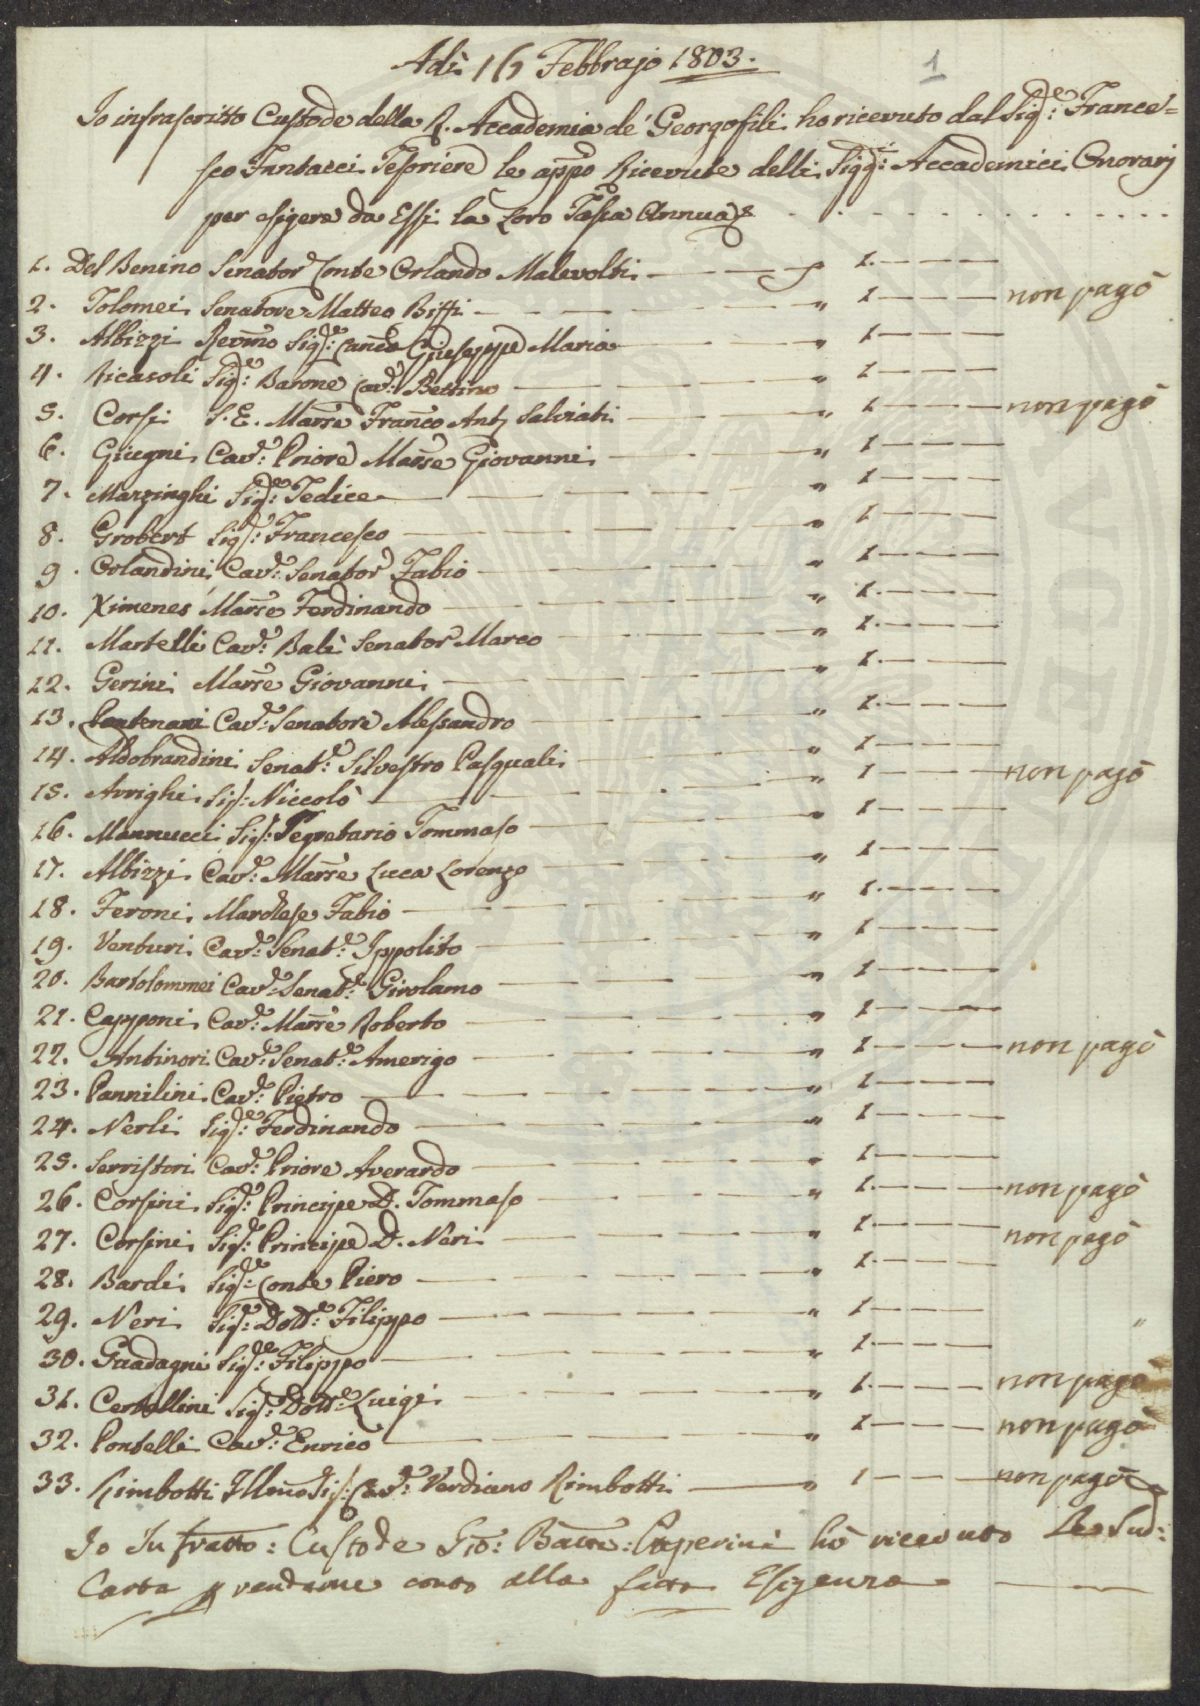 Adì 16 Febbrajo 1803.
1
Io infrascritto Custode della R. Accademia de' Georgofili ho ricevuto dal Sig.re Frances=
sco Fantacci Tesoriere le app.o Ricevute delli Sigg.ri Accademici Onorarj
per esigere da Essi la Loro Tassa Annua
1. Del Benino Senator Conte Orlando Malevolti — 1. —
2. Tolomei Senatore Matteo Biffi — „ 1 — non pagò
3. Albizzi Revmo Sig.re Canco Giuseppe Maria — „ 1 —
4. Ricasoli Sig.re Barone Cav.re Bettino — „ 1 —
5. Corsi S. E. Marse Franco Ant. Salviati — „ 1 — non pagò
6. Giugni Cav.re Priore Marse Giovanni — „ 1 —
7. Marzinghi Sig.re Tedice — „ 1 —
8. Grobert Sig.re Francesco — „ 1 —
9. Orlandini Cav.re Senator Fabio — „ 1 —
10. Ximenes Marse Ferdinando — „ 1 —
11. Martelli Cav.re Balì Senator Marco — „ 1 —
12. Gerini Marse Giovanni — „ 1 —
13. Cav.re Senatore Alessandro — „ 1 —
14. Aldobrandini Senat.re Silvestro Pasquali — „ 1 —
15. Arrighi Sig.re Niccolò — „ 1 — non pagò
16. Mannucci Sig.re Segretario Tommaso — „ 1 —
17. Albizzi Cav.re Marse Luca Lorenzo — „ 1 —
18. Feroni Marchese Fabio — „ 1 —
19. Venturi Cav.re Senat.re Ippolito — „ 1 —
20. Bartolommei Cav.re Senat.re Girolamo — „ 1 —
21. Capponi Cav.re Marse Roberto — „ 1 —
22. Antinori Cav.re Senat.re Amerigo — „ 1 — non pagò
23. Pannilini Cav.re Pietro — „ 1 —
24. Nerli Sig.re Ferdinando — „ 1 —
25. Serristori Cav.re Priore Averardo — „ 1 —
26. Corsini Sig.re Principe D. Tommaso — „ 1 — non pagò
27. Corsini Sig.re Principe D. Neri — „ 1 — non pagò
28. Bardi Sig.re Conte Piero — „ 1 —
29. Neri Sig.re Dott.re Filippo — „ 1 —
30. Guadagni Sig.re Filippo — „ 1 —
31. Certellini Sig.re Dott.re Luigi — „ 1 — non pagò
32. Pontelli Cav.re Enrico — „ 1 — non pagò
33. Rimbotti Illmo Sig.re Cav.re Verdiano Rimbotti — „ 1 — non pagò
Io Infratto: Custode Gio: Batta: Paperini hò riceuuto La Sud:
Carta p rendarne conto alla fatta Esigenza —